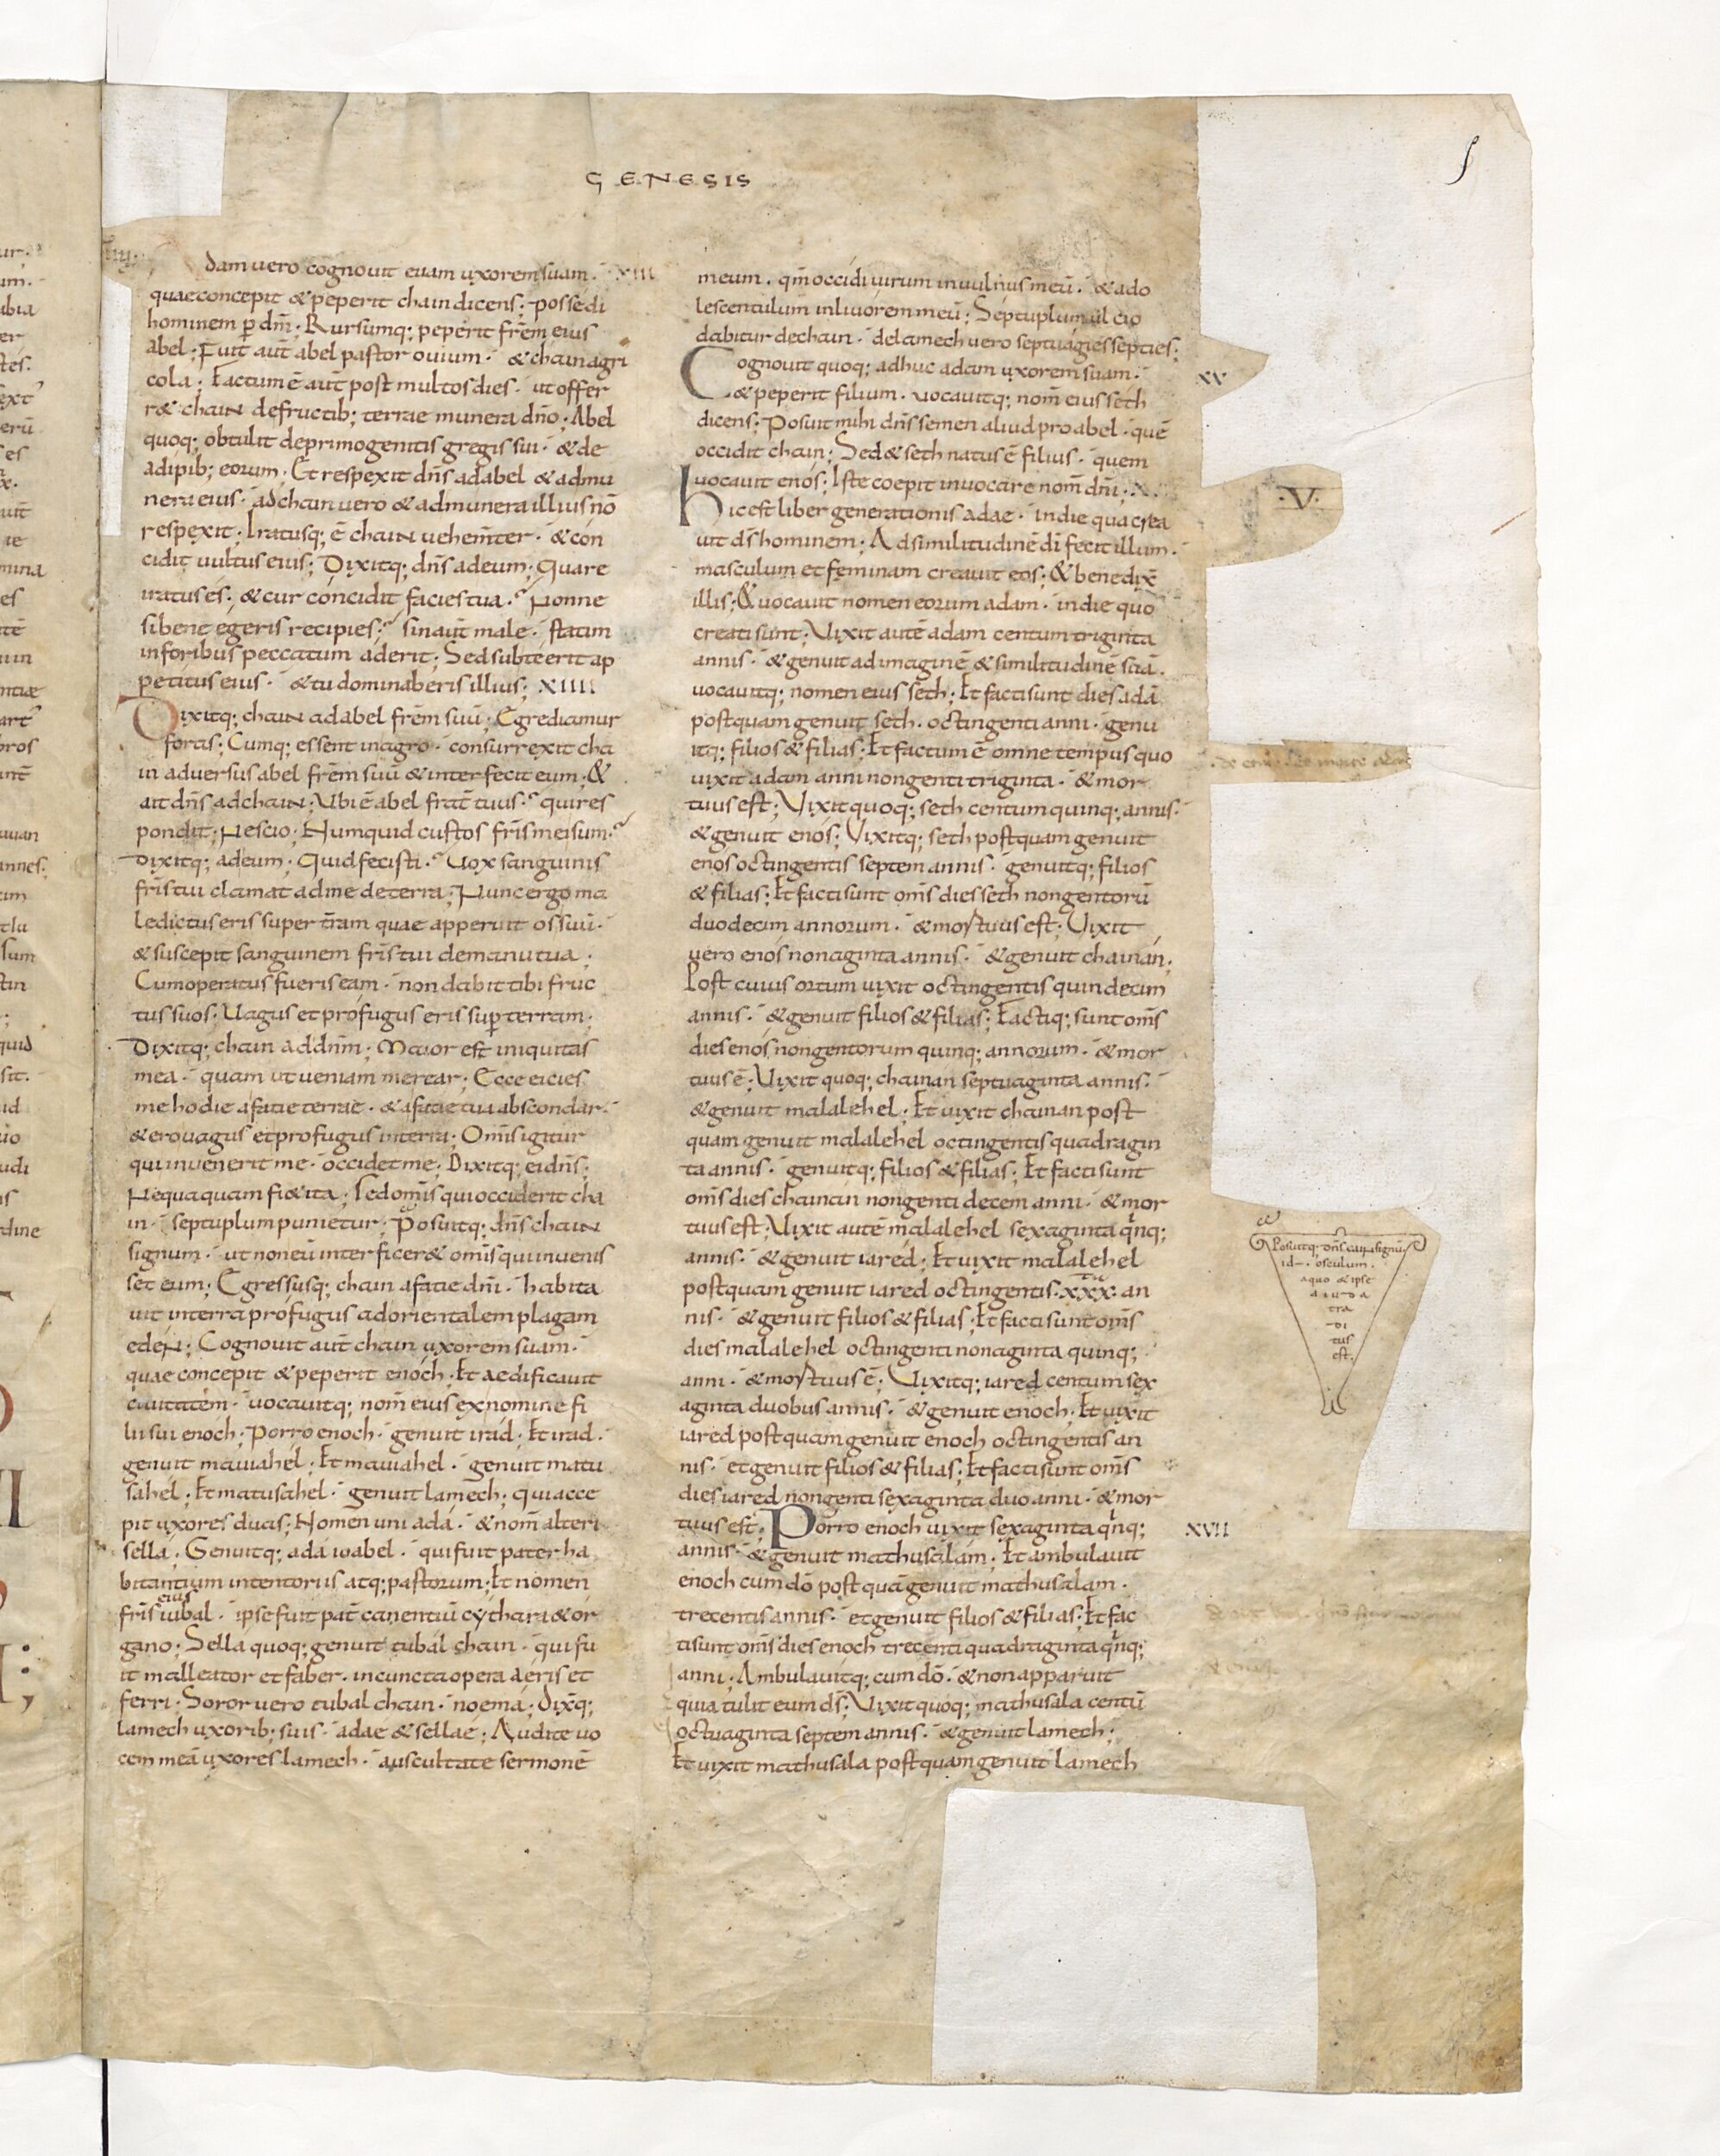 GENESIS
dam vero cognouit euam uxorem suam. XIII
quae concepit & peperit chain dicens; possedi
hominem p dm̄; Rursumq; peperit frēm eius
abel; Fuit aut̄ abel pastor ouium. & chain agri
cola; Factum ē aut̄ post multos dies. ut offer
r& chain defructib; terrae munera dn̄o; Abel
quoq; obtulit deprimogenitis gregis sui. & de
adipib; eorum. Et respexit dn̄s adabel & admu
nera eius. ad chain vero & admunera illius nō
respexit; Iratusq; ē chain uehem̄ter. & con
cidit uultus eius; Dixitq; dn̄s adeum; Quare
iratus es. & cur concidit facies tua. Nonne
si bene egeris recipies; sin aut̄ male. statim
inforibus peccatum aderit; Sed subte erit ap
petitus eius. & tu dominaberis illius; XIIII
Dixitq; chain ad abel frēm suū; Egrediamur
foras; Cumq; essent inagro. consurrexit cha
in adversus abel frēm suū & interfecit eum; &
ait dn̄s adchain; Ubi ē abel frat̄ tuus. qui res
pondit; Nescio; Numquid custos fr̄is mei sum.
Dixitq; adeum; Quid fecisti. Uox sanguinis
fr̄is tui clamat adme deterra; Nunc ergo ma
ledictus eris super t̄ram quae apperuit os suū.
& suscepit sanguinem fr̄is tui demanu tua;
Cum operatus fueris eam. non dabit tibi fruc
tus suos; Uagus et profugus eris sup terram;
Dixitq; chain ad dn̄m; Maior est iniquitas
mea. quam ut ueniam merear; Ecce eicies
me hodie afatie terrae. & afatie tua abscondar.
& ero uagus et profugus interra; Om̄s igitur
qui inuenerit me. occidet me. Dixitq; ei dn̄s;
Nequaquam fi& ita; Sed om̄is qui occiderit cha
in. septuplum punietur; Posuitq; dn̄s chain
signum. ut non eū interficer& om̄is qui inuenis
set eum; Egressusq; chain afatie dn̄i. habita
uit interra profugus adorientalem plagam
eden; Cognouit aut̄ chain uxorem suam.
quae concepit & peperit enoch. Et aedificauit
ciuitatem. uocauitq; nom̄ eius exnomine fi
lii sui enoch; Porro enoch. genuit irad; Et irad.
genuit mauiahel; Et mauiahel. genuit matu
sahel; Et matusahel. genuit lamech; qui acce
pit uxores duas; Nomen uni ada. & nom̄ alteri
sella. Genuitq; ada iabel. qui fuit pater ha
bitantium intentoriis atq; pastorum; Et nomen
fr̄is eius iubal. ipse fuit pat̄ canentiū cythara & or
gano; Sella quoq; genuit tubal chain. qui fu
it malleator et faber. in cuncta opera aeris et
ferri. Soror vero tubal chain. noema. Dix̄q;
lamech uxorib; suis. adae & sellae; Audite uo
cem meā uxores lamech. auscultate sermonē
meum. qm̄ occidi uirum in uulnus meū. & ado
lescentulum in liuorem meū; Septuplum ul cio
dabitur de chain. de lamech vero septuagies septies;
Cognouit quoq; adhuc adam uxorem suam.
XV
& peperit filium. uocauitq; nom̄ eius seth
dicens; Posuit mihi dn̄s semen aliud pro abel. quē
occidit chain; Sed & seth natus ē filius. quem
uocauit enos; Iste coepit inuocare nom̄ dn̄i;
·V·
Hic est liber generationis adae. in die qua crea
uit ds̄ hominem; Ad similitudinē dī fecit illum.
masculum et feminam creauit eos; & benedix̄
illis; & uocauit nomen eorum adam. in die quo
creati sunt; Vixit autē adam centum triginta
annis. & genuit ad imaginē & similitudinē suā.
uocauitq; nomen eius seth; Et facti sunt dies adā
postquam genuit seth. octingenti anni. genu
itq; filios & filias; Et factum ē omne tempus quo
uixit adam anni nongenti triginta. & mor
tuus est; Vixit quoq; seth centum quinq; annis.
& genuit enos; Vixitq; seth postquam genuit
enos octingentis septem annis. genuitq; filios
& filias; Et facti sunt om̄s dies seth nongentorū
duodecim annorum. & mortuus est; Vixit
vero enos nonaginta annis. & genuit chainan;
Post cuius ortum uixit octingentis quindecim
annis. & genuit filios & filias; Factiq; sunt om̄s
dies enos nongentorum quinq; annorum. & mor
tuus ē; Vixit quoq; chainan septuaginta annis.
& genuit malalehel; Et uixit chainan post
quam genuit malalehel octingentis quadragin
ta annis. genuitq; filios & filias; Et facti sunt
om̄s dies chainan nongenti decem anni. & mor
tuus est; Vixit autē malalehel sexaginta qnq;
annis. & genuit iared; Et uixit malalehel
postquam genuit iared octingentis. xxx. an
nis. & genuit filios & filias; Et facti sunt om̄s
dies malalehel octingenti nonaginta quinq;
anni. & mortuus ē; Vixitq; iared centum sex
aginta duobus annis. & genuit enoch; Et uixit
iared postquam genuit enoch octingentis an
nis. et genuit filios & filias; Et facti sunt om̄s
dies iared nongenti sexaginta duo anni. & mor
tuus est. Porro enoch uixit sexaginta qnq;
XVII
annis. & genuit mathusalam. Et ambulauit
enoch cum dō postquā genuit mathusalam.
trecentis annis. et genuit filios & filias; Et fac
ti sunt om̄s dies enoch trecenti quadraginta qnq;
anni; Ambulauitq; cum dō. & non apparuit
quia tulit eum ds̄; Vixit quoq; mathusala centū
octuaginta septem annis. & genuit lamech;
Et uixit mathusala postquam genuit lamech
Posuitq; dn̄s cain signū
id–. osculum.
a quo & ipse
a iuda
tra
di
tus
est.